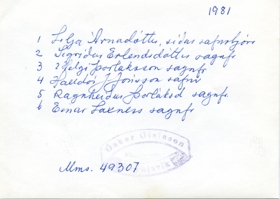 1981
1 Lilja Árnadóttir, safnstjóri
2 Sigríður Erlendsdóttir sagnfr
3 Helgi Þorláksson sagnfr.
4 Halldór J Jónsson safnv
5 Ragnheiður Þorláksd sagnfr.
6 Einar Laxness sagnfr
Mms. 49307